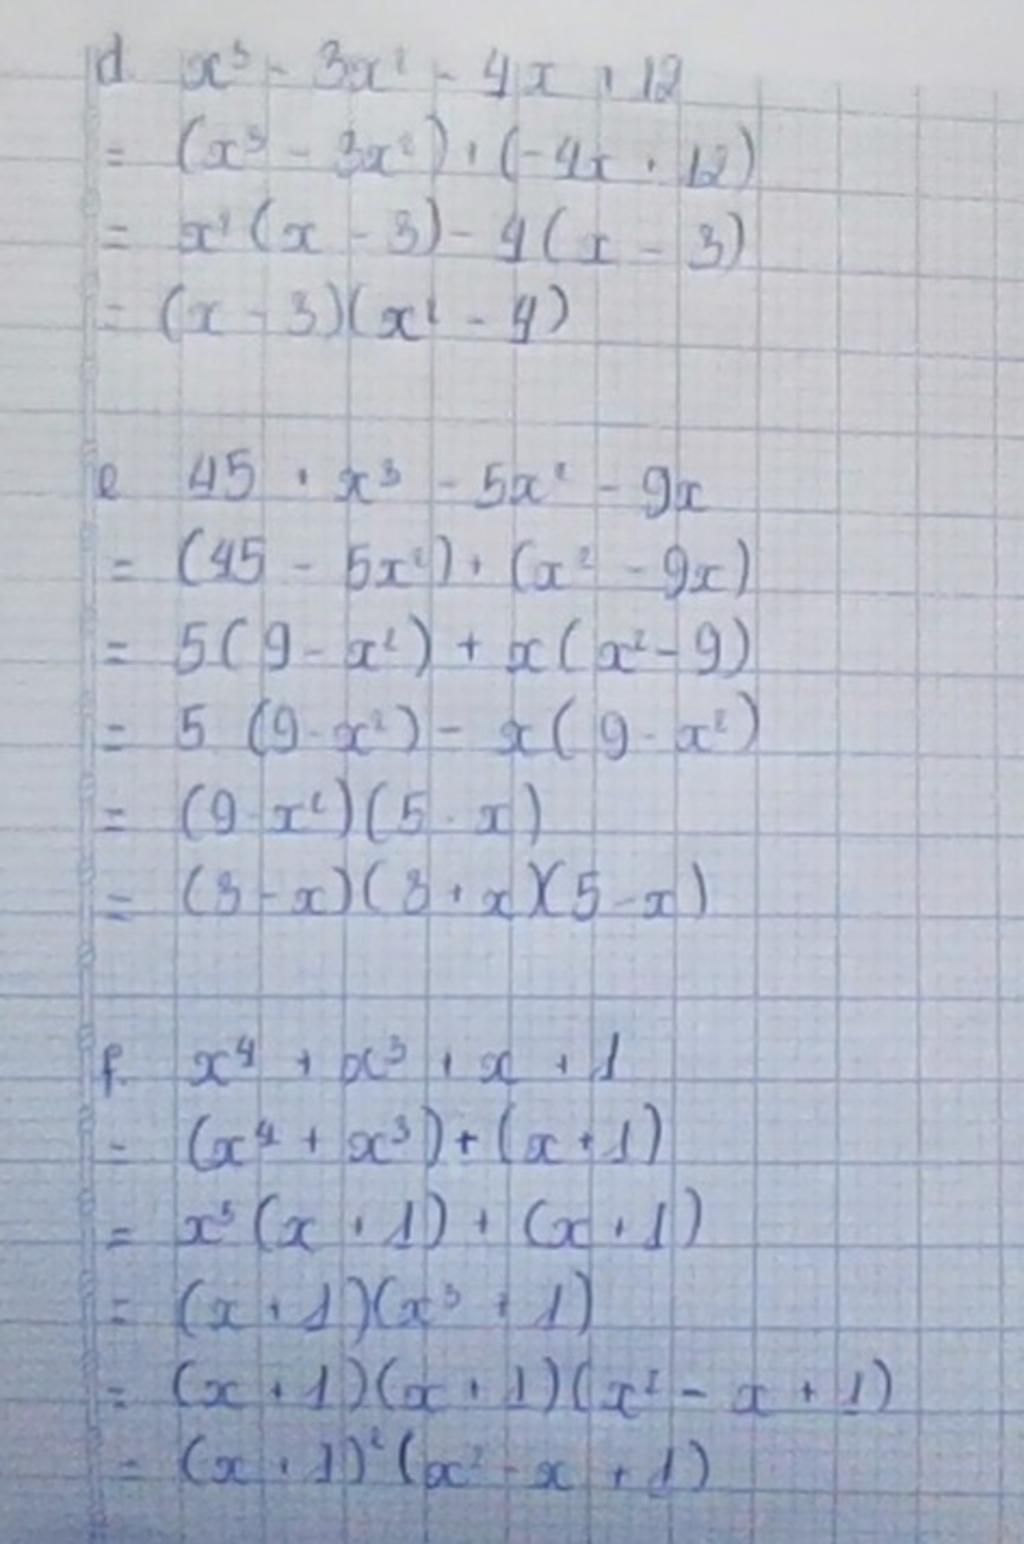 d. x³ - 3x² - 4x + 12
= (x³ - 3x²) + (-4x + 12)
= x²(x - 3) - 4(x - 3)
= (x - 3)(x² - 4)
e. 45 + x³ - 5x² - 9x
= (45 - 5x²) + (x² - 9x)
= 5(9 - x²) + x(x² - 9)
= 5(9 - x²) - x(9 - x²)
= (9 - x²)(5 - x)
= (3 - x)(3 + x)(5 - x)
f. x⁴ + x³ + x + 1
= (x⁴ + x³) + (x + 1)
= x³(x + 1) + (x + 1)
= (x + 1)(x³ + 1)
= (x + 1)(x + 1)(x² - x + 1)
= (x + 1)²(x² - x + 1)